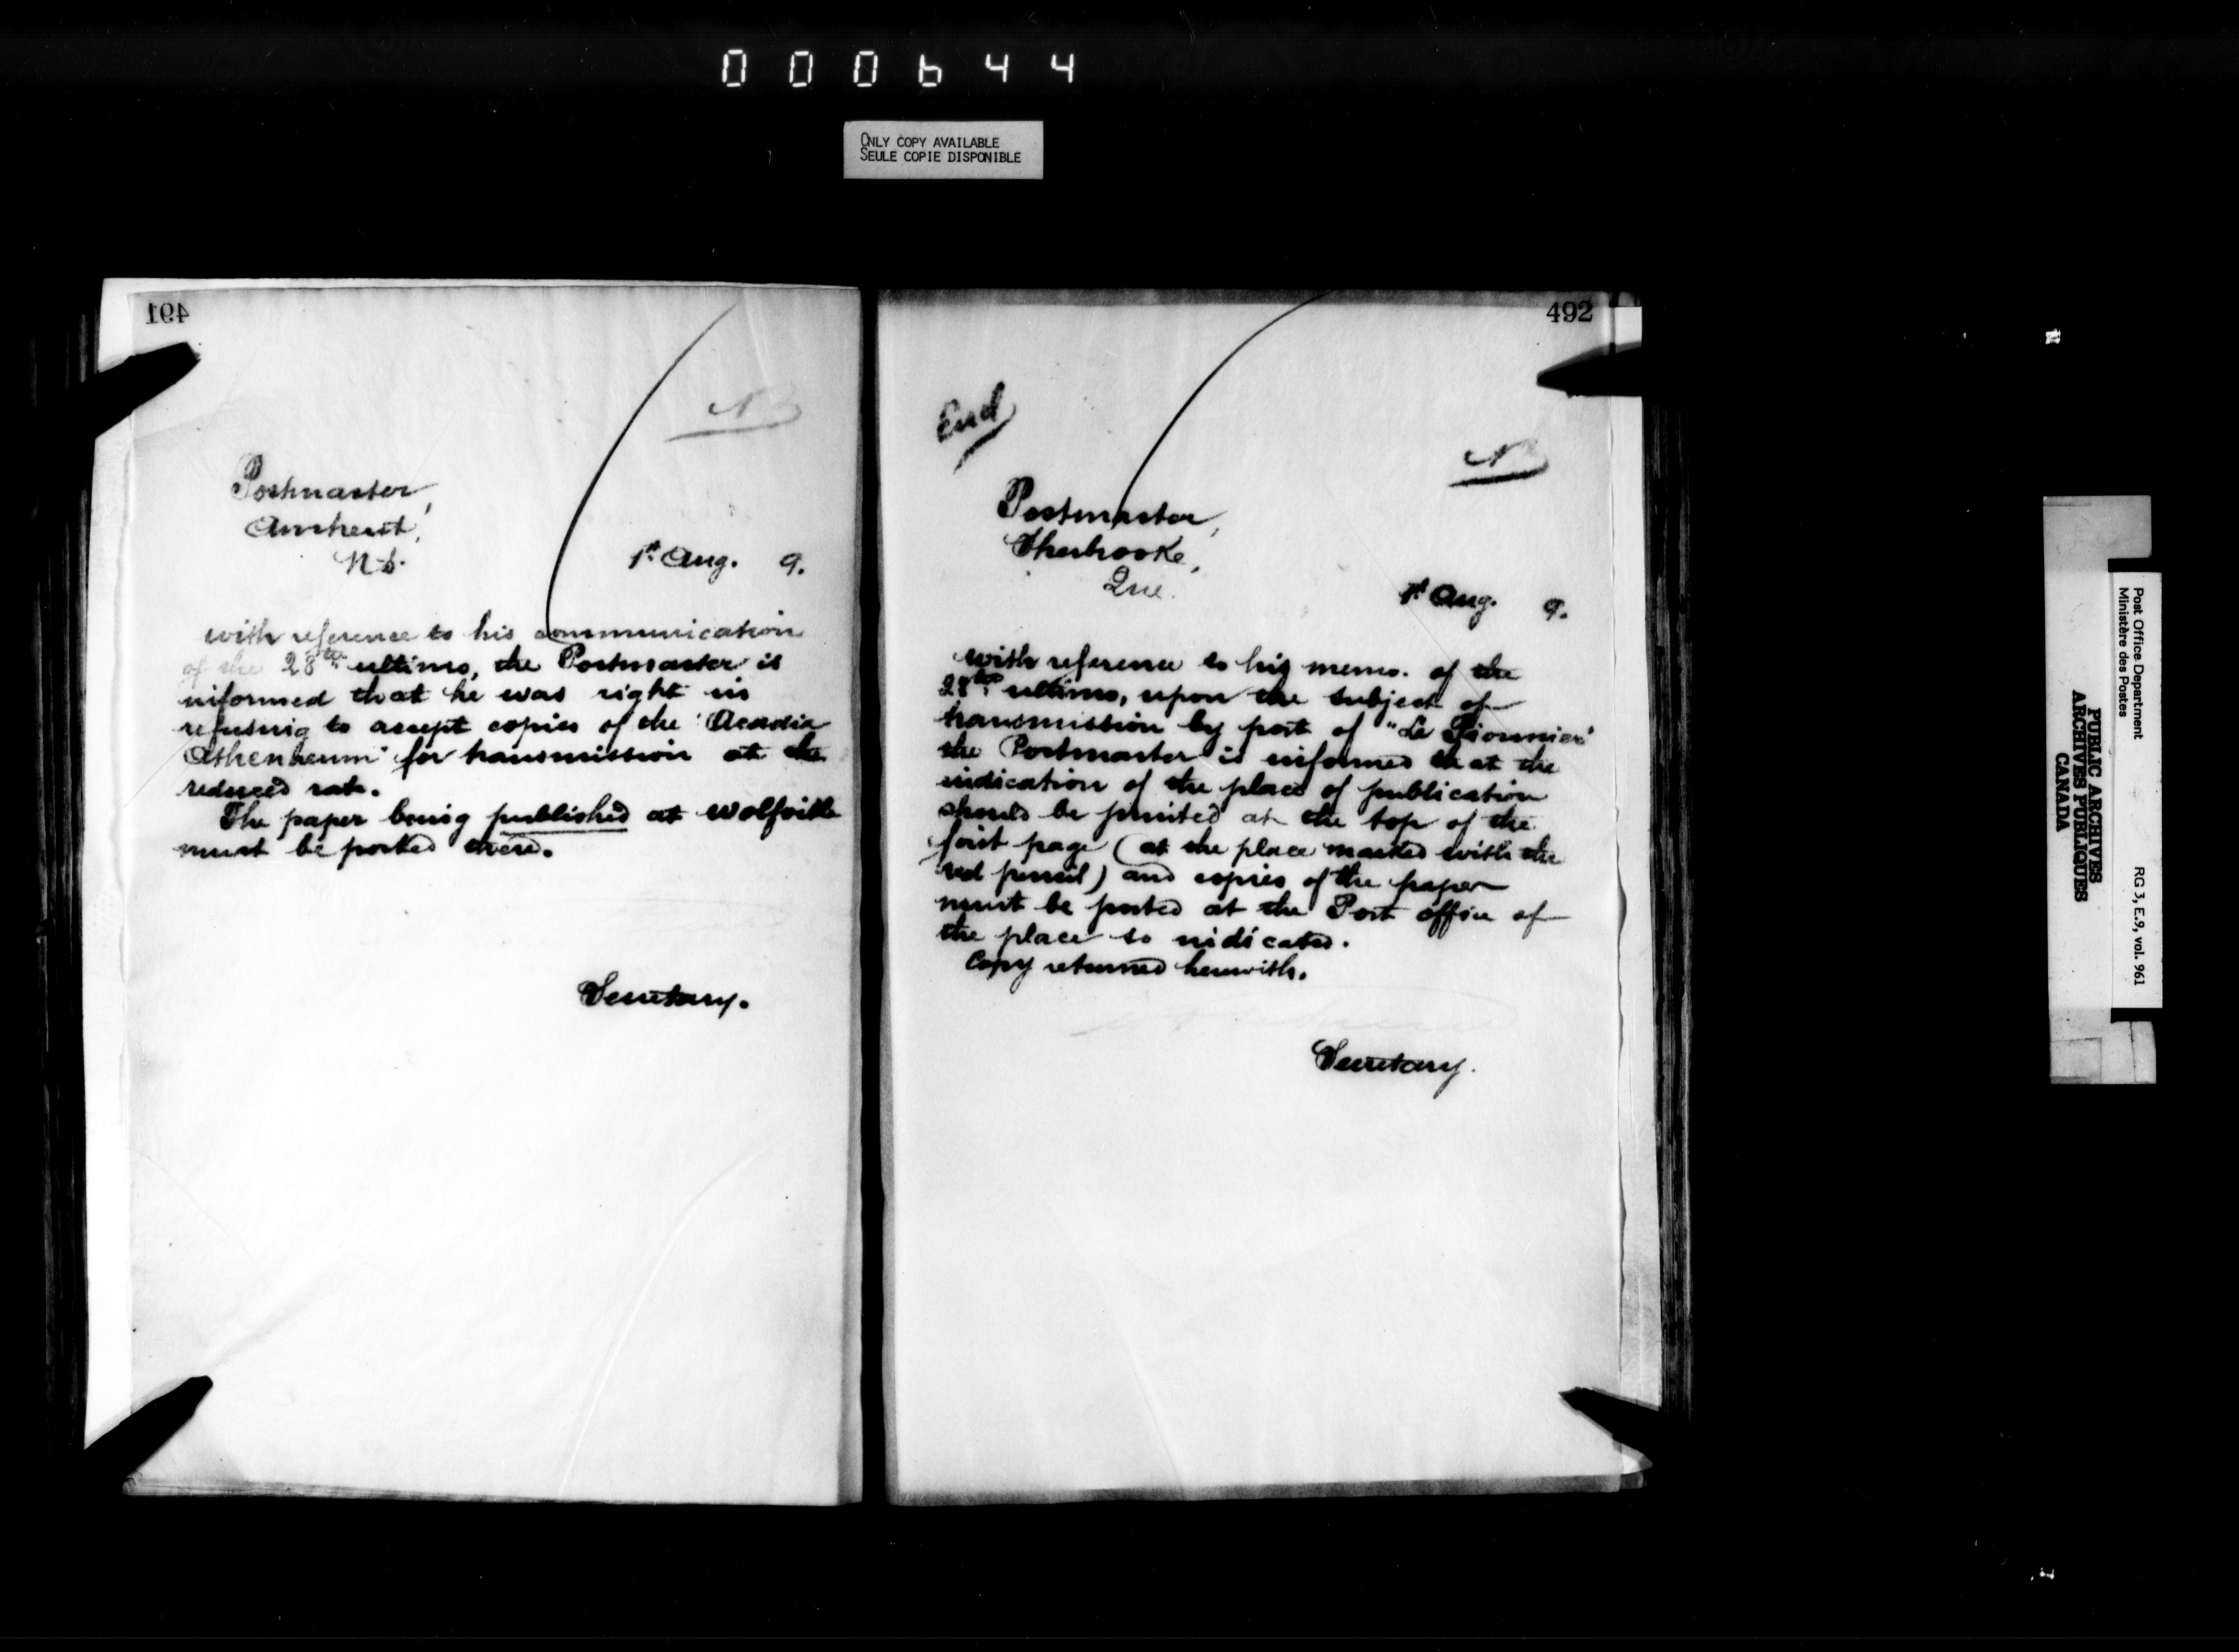 000644
ONLY COPY AVAILABLE
SEULE COPIE DISPONIBLE
491
Postmaster,
Amherst,
N.S.
1st Aug. 9.
with reference to his communication
of the 28th ultimo, the Postmaster is
informed that he was right in
refusing to accept copies of the "Acadia
Athenaeum" for transmission at the
reduced rate.
The paper being published at Wolfville
must be posted there.
Secretary.
492
Encl
Postmaster,
Sherbrooke,
Que.
1st Aug. 9.
with reference to his memo. of the
28th ultimo, upon the subject of
transmission by post of "Le Pionnier"
the Postmaster is informed that the
indication of the place of publication
should be printed at the top of the
first page (at the place marked with the
red pencil) and copies of the paper
must be posted at the Post office of
the place so indicated.
Copy returned herewith.
Secretary.
Post Office Department
Ministère des Postes
RG 3, E.9, vol. 961
PUBLIC ARCHIVES
ARCHIVES PUBLIQUES
CANADA